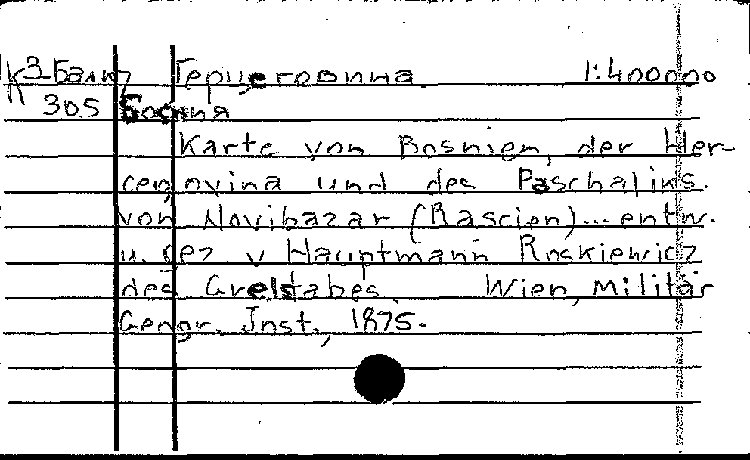 К 3-Балк Герцеговина 1:400000
305 Босния
Karte von Bosnien, der Her-
cegovina und des Paschaliks
von Novibazar (Rascien)... entw.
u. gez v Hauptmann Roskiewicz
des Grelstabes. Wien, Militär
Geogr. Inst., 1875.